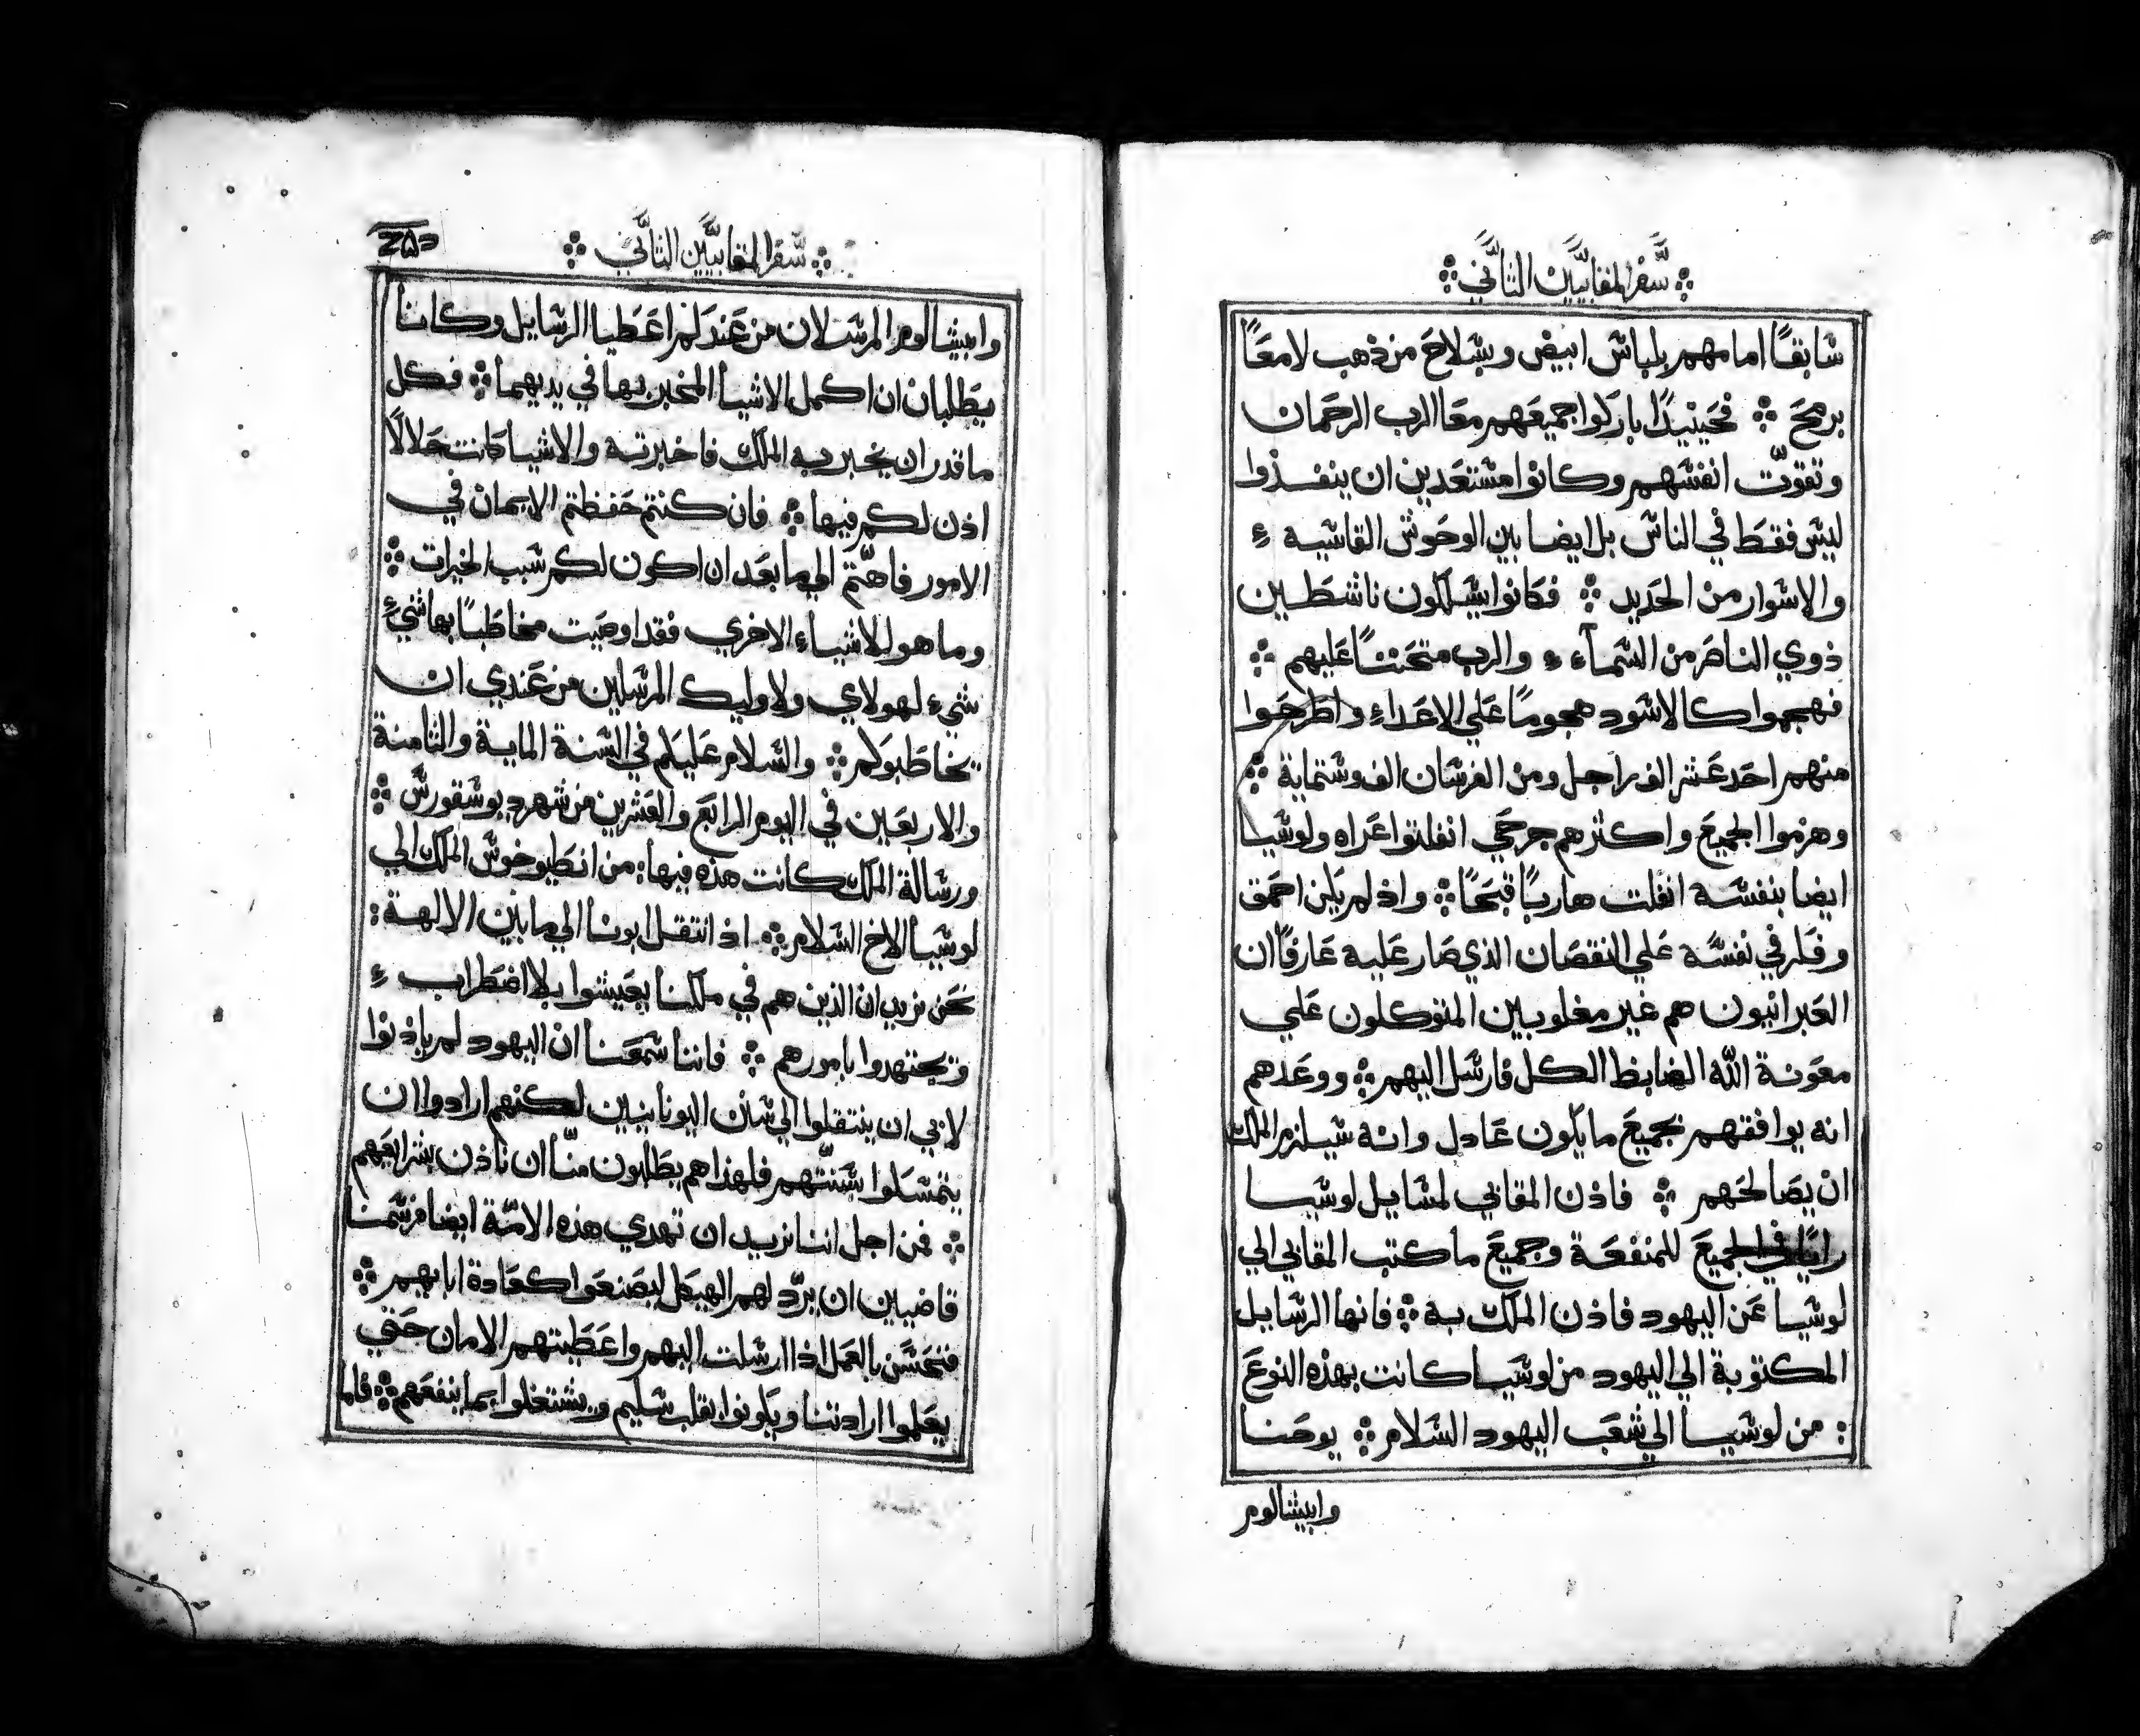 سفر المقابيين الثاني
سابقًا امامهم بلباس ابيض وبسلاح من ذهب لامعًا
برمح ܀ فحينيدًا باركوا جميعهم معا الرب الرحمان
وتقوّت انفسهم وكانوا مستعدين ان ينفذوا
ليس فقط في الناس بل ايضا بين الوحوش القاسيه
والاسوار من الحديد ܀ فكانوا يسلكون ناشطين
ذوي الناصر من السماء والرب متحننًا عليهم ܀
فهجموا كالاسود هجومًا علي الاعداء واطرحوا
منهم احد عشر الف راجل ومن الفرسان الف وستماية ܀
وهزموا الجميع واكثرهم جرحي انفلتوا عراه ولوسيا
ايضا بنفسه انفلت هاربًا قبحًا ܀ واذ لم يكن احمق
وفكر في نفسه علي النقصان الذي صار عليه عارفًا ان
العبرانيون هم غير مغلوبين المتوكلون علي
معونة الله الضابط الكل فارسل اليهم ܀ ووعدهم
انه يوافقهم بجميع ما يكون عادل وانه سيلزم الملك
ان يصالحهم ܀ فاذن المقابي لمسايل لوسيا
رايًا في الجميع للمنفعة وجميع ما كتب المقابي الي
لوسيا عن اليهود فاذن الملك به ܀ فانها الرسايل
المكتوبة الي اليهود من لوسيا كانت بهذه النوع
: من لوسيا الي شعب اليهود السلام ܀ يوحنا
وابيشالوم
سفر المقابيين الثاني
وابيشالوم المرسلان من عندكم اعطيا الرسايل وكانا
يطلبان ان اكمل الاشيا المخبر بها في يديهما ܀ فكل
ما قدر ان يخبر به الملك فاخبرته والاشيا كانت حلالًا
اذن لكم فيها ܀ فان كنتم حفظتم الايمان في
الامور فاهتم الي ما بعد ان اكون لكم سبب الخيرات ܀
وما هو للاشياء الاخري فقد اوصيت مخاطبًا بها شيء
شيء لهولاي ولاوليك المرسلين من عندي ان
يخاطبوكم ܀ والسلام عليكم في السنة الماية والثامنة
والاربعين في اليوم الرابع والعشرين من شهر ديوسقورس ܀
ورسالة الملك كانت هذه فيها: من انطيوخوس الملك الي
لوسيا الاخ السلام ܀ اذ انتقل ابونا الي ما بين الالهة:
نحن نريد ان الذين هم في ملكنا يعيشوا بلا اضطراب
وتجتهدوا بامورهم ܀ فاننا سمعنا ان اليهود لم ياذنوا
لابي ان ينتقلوا الي سنن اليونانيين لكنهم ارادوا ان
يتمسكوا بسنتهم فلهذا هم يطلبون منّا ان ناذن بشرايعهم
܀ فمن اجل اننا نريد ان تهدي هذه الامّة ايضا فرسمنا
قاضيين ان يردّ لهم الهيكل ليصنعوا كعادة ابايهم ܀
فتحسن بالعمل اذا ارسلت اليهم واعطيتهم الامان حتي
يعلموا ارادتنا ويكونوا بقلب سليم ويشتغلوا بما ينفعهم ܀ فاما